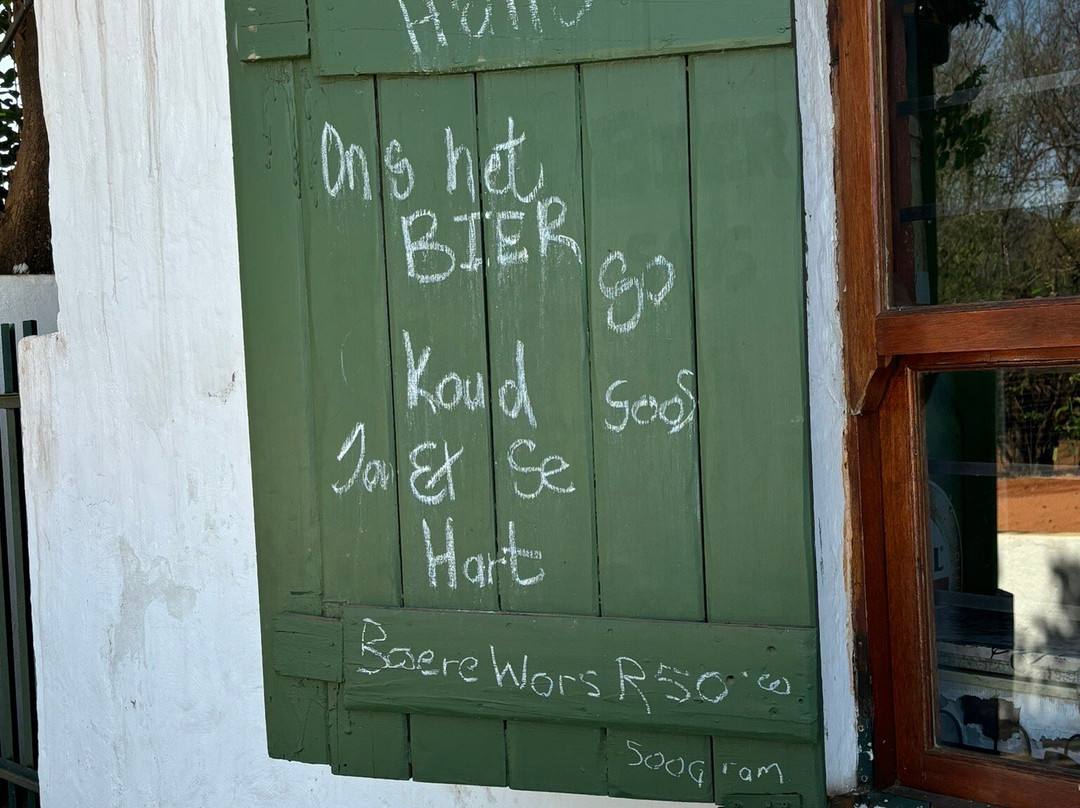 Hallo
Ons het
BIER so
Koud soos
Jou Ex se
Hart
Boere Wors R50.00
500gram